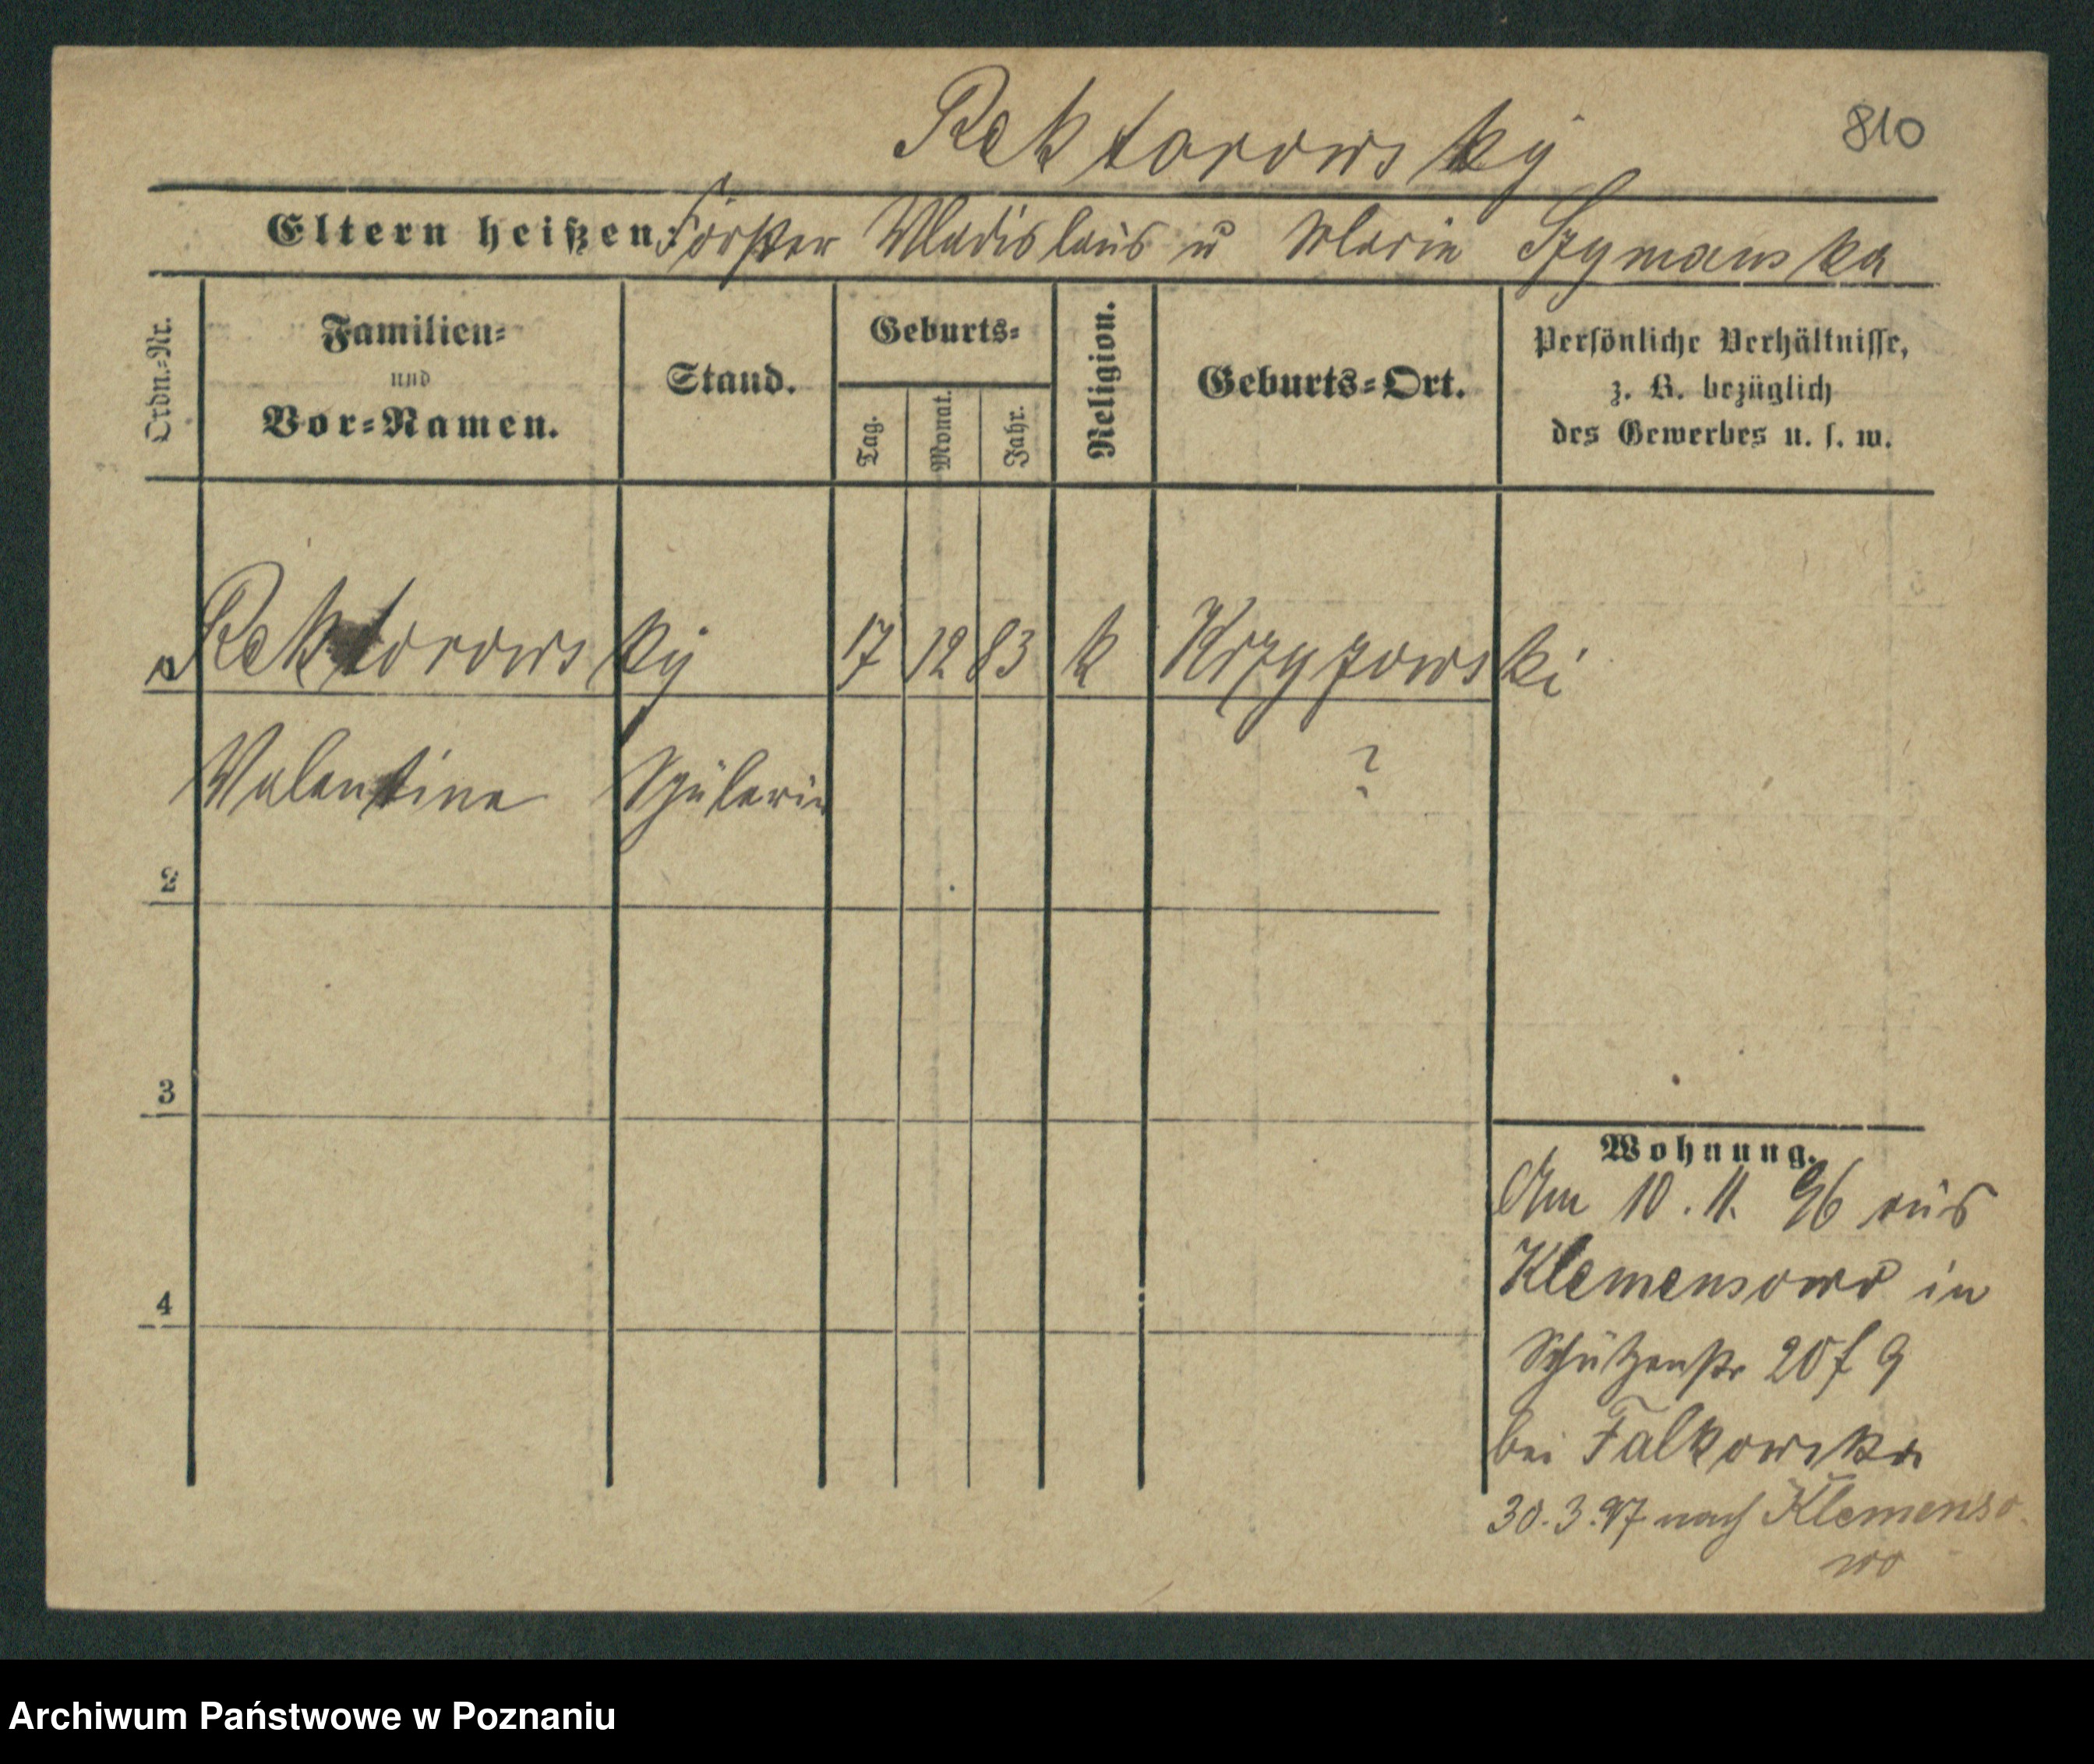 Rektorowsky
810
Eltern heißen: Förster Wladislaus u Marie Szymanska
Ordn.=Nr.
Familien=
und
Vor=Namen.
Stand.
Geburts=
Tag.
Monat.
Jahr.
Religion.
Geburts=Ort.
Persönliche Verhältnisse,
z. B. bezüglich
des Gewerbes u. s. w.
Rektorowsky 17 12 83 k Krzyzowski
Valentine Schülerin ?
2
3
4
Wohnung.
Am 10. 11. 96 aus
Klemensowo in
Schützenstr 20 f 9
bei Falkowska
30. 3. 97 nach Klemenso-
wo
Archiwum Państwowe w Poznaniu